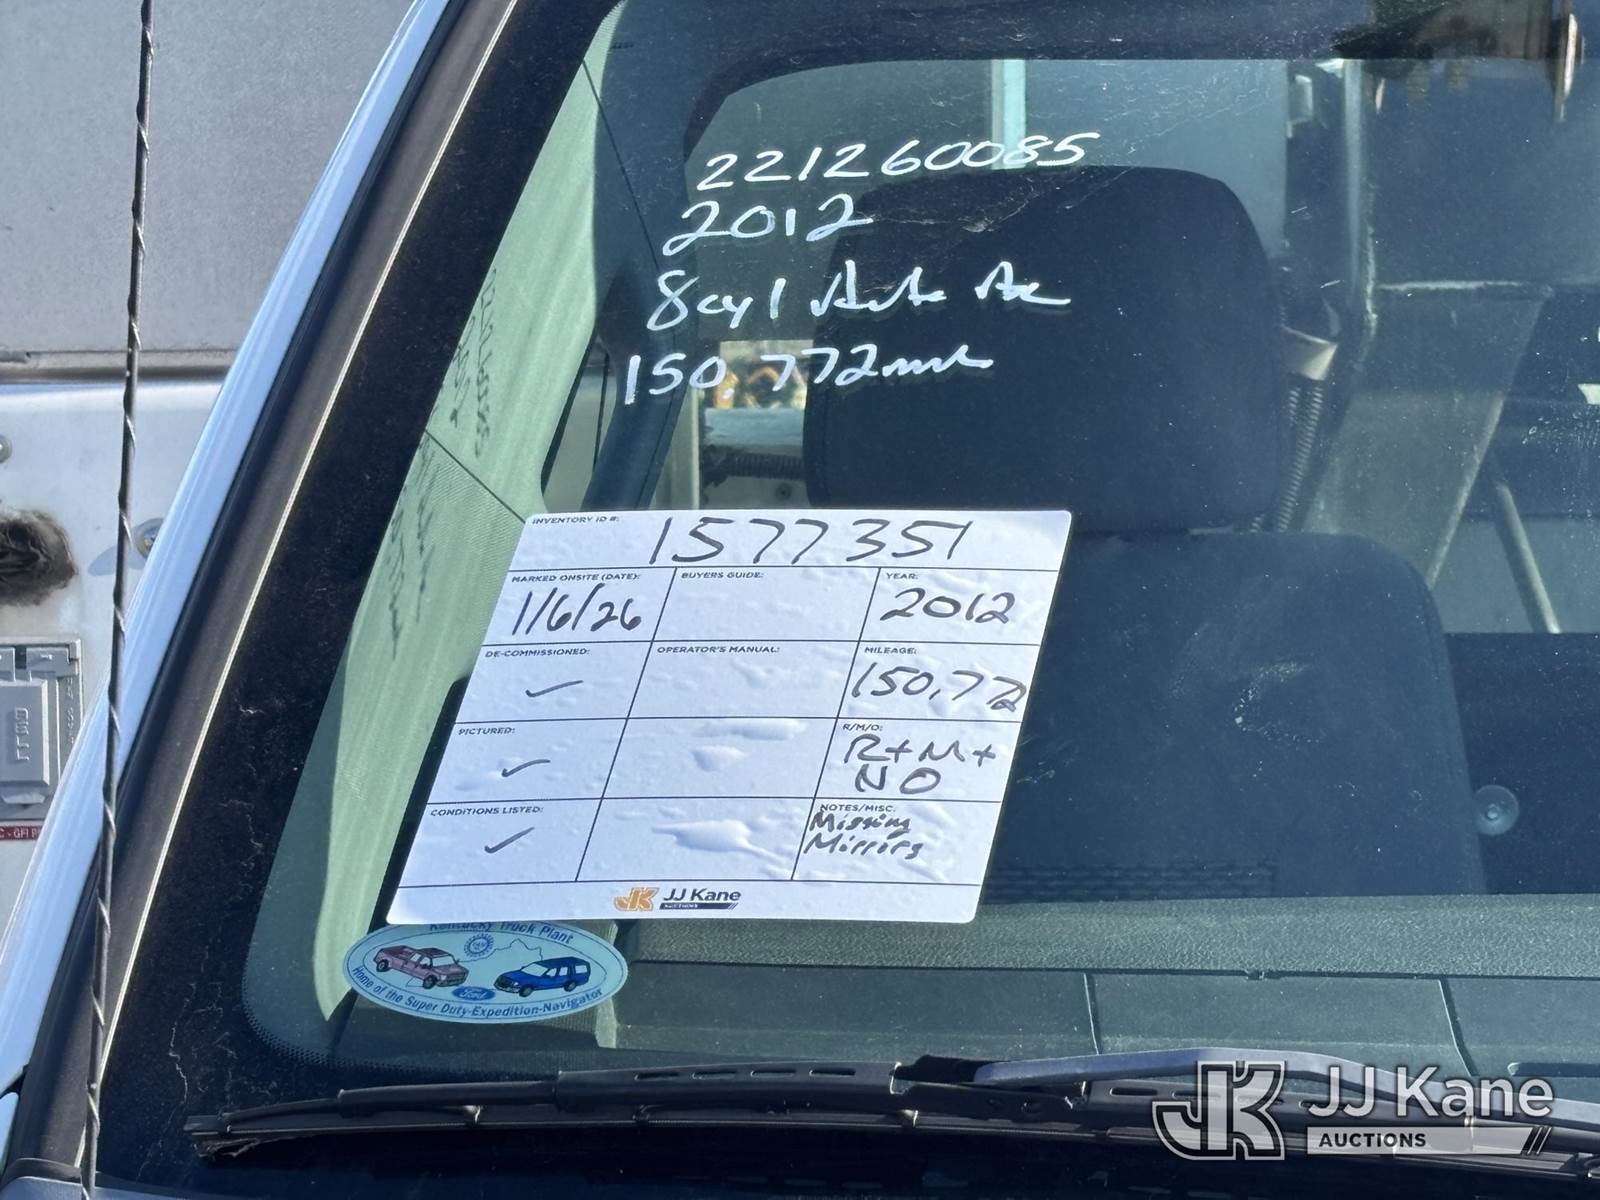 221260085
2012
8cyl Auto Ac
150,772
INVENTORY ID #: 1577351
MARKED ONSITE (DATE): BUYERS GUIDE: YEAR:
1/6/26 2012
DE-COMMISSIONED: OPERATOR'S MANUAL: MILEAGE:
✓ 150,772
PICTURED: R/M/O:
✓ R+M+
NO
CONDITIONS LISTED: NOTES/MISC.
✓ Missing
Mirrors
JK JJ Kane
AUCTIONS
Kentucky Truck Plant
Ford
Home of the Super Duty-Expedition-Navigator
JK JJ Kane
AUCTIONS